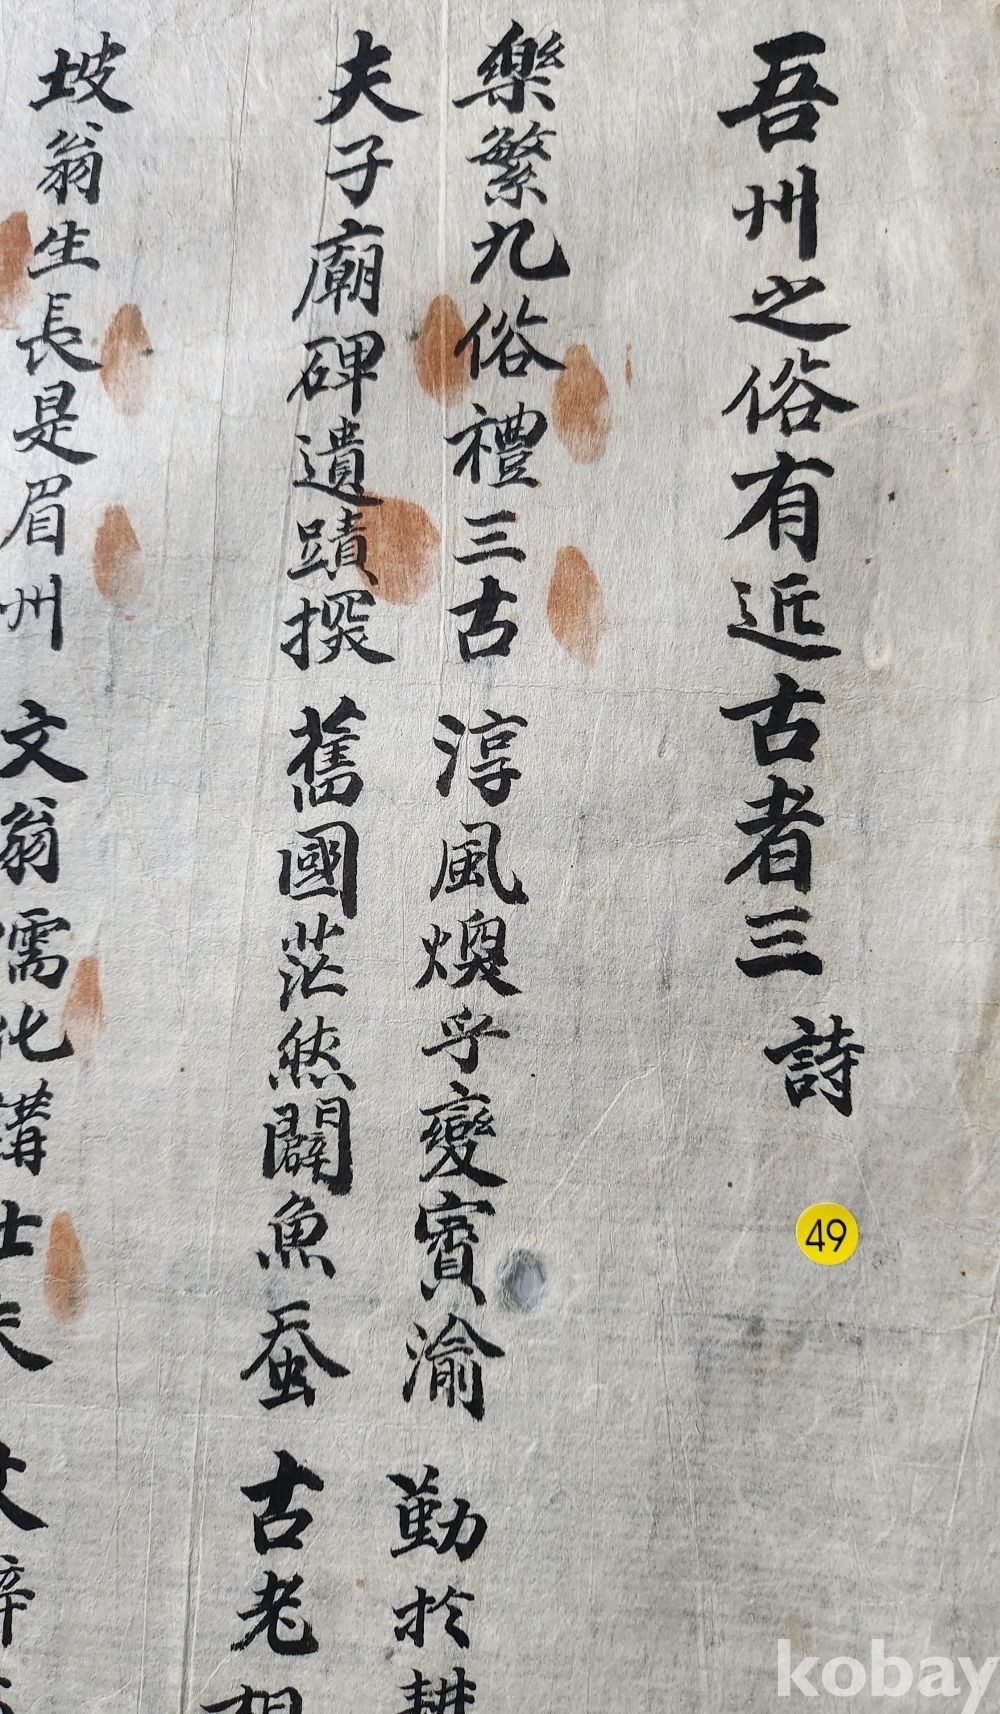 吾州之俗有近古者三 詩
樂繁九俗禮三古 淳風煥乎變賓渝 勤於耕
夫子廟碑遺蹟撰 舊國茫然闢魚蚕 古老相
坡翁生長是眉州 文翁儒化講士夫
49
kobay